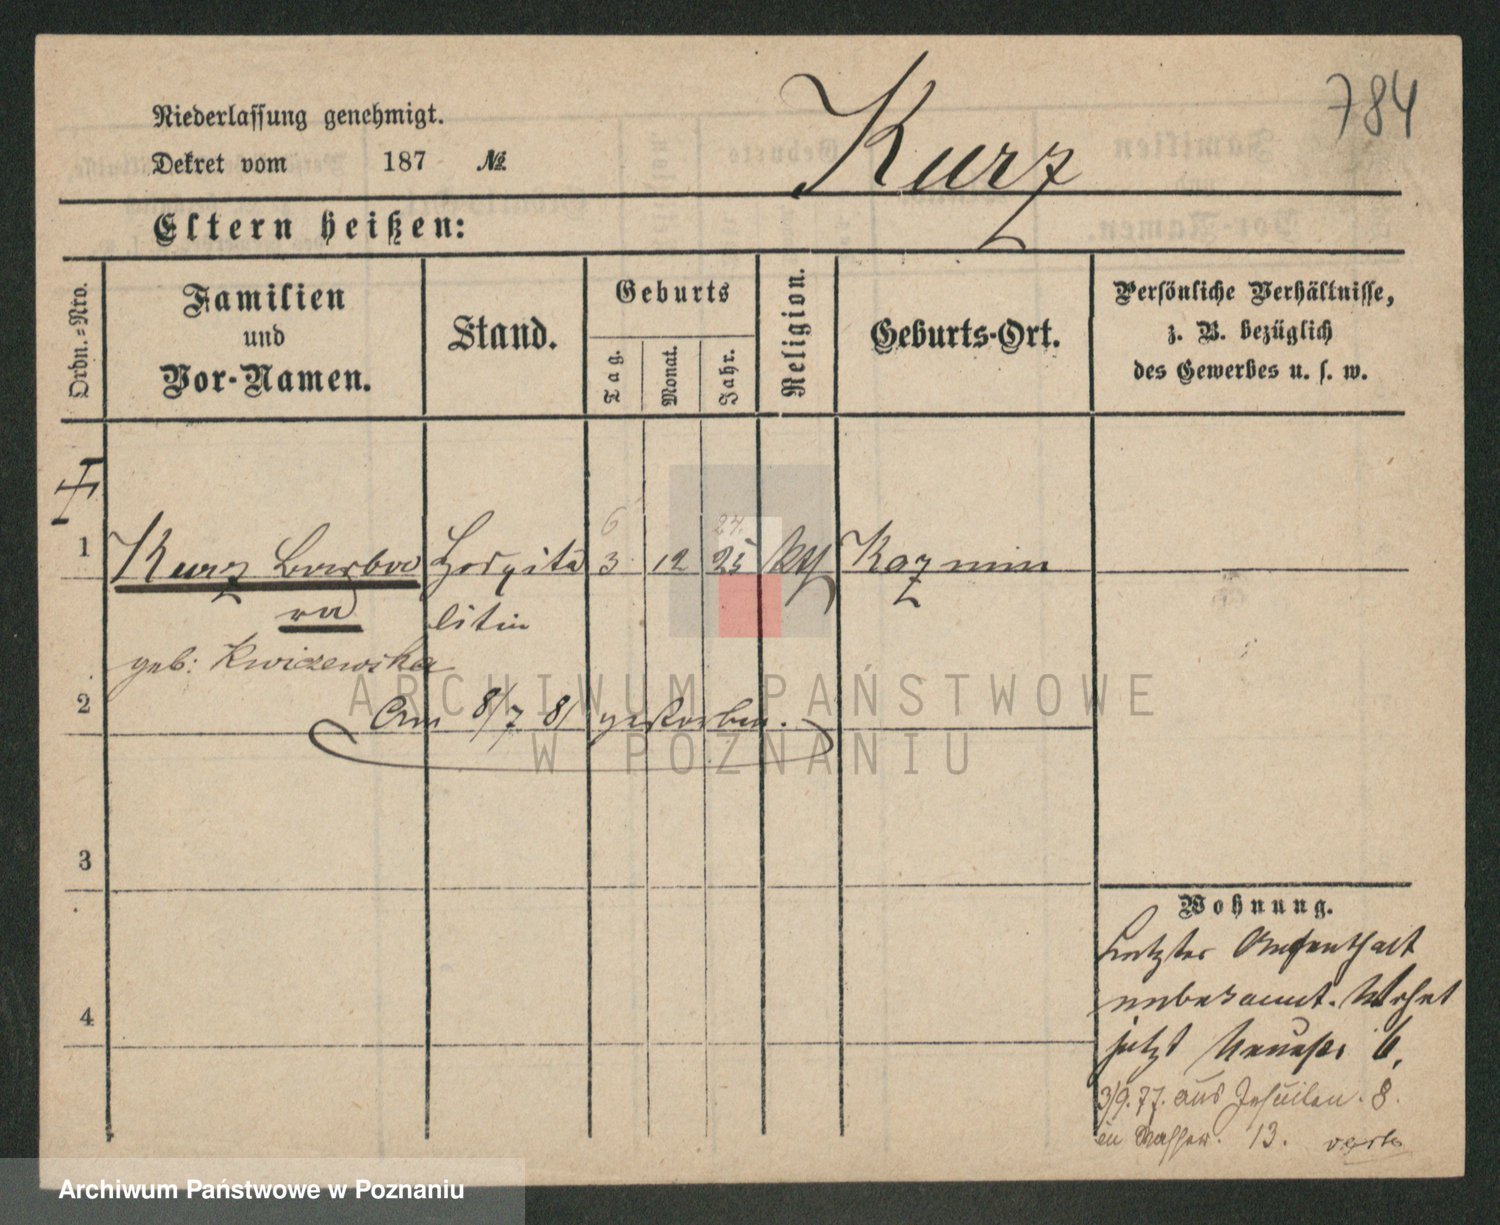 784
Niederlassung genehmigt.
Dekret vom 187 №
Kurz
Eltern heißen:
Ordn.=Nro.
Familien
und
Vor-Namen.
Stand.
Geburts
Tag.
Monat.
Jahr.
Religion.
Geburts-Ort.
Persönliche Verhältnisse,
z. B. bezüglich
des Gewerbes u. s. w.
6 24.
1 Kurz Barba Hospita 3 12 25 kth Kozmin
ra litin
geb: Kwiczewska
2 Am 8/7 81 gestorben.
3
4
Wohnung.
Letzter Aufenthalt
unbekannt. Wohnt
jetzt 6.
3/9.77. aus Jesuiten. 8.
in Wasser. 13. verte
ARCHIWUM PAŃSTWOWE
W POZNANIU
Archiwum Państwowe w Poznaniu